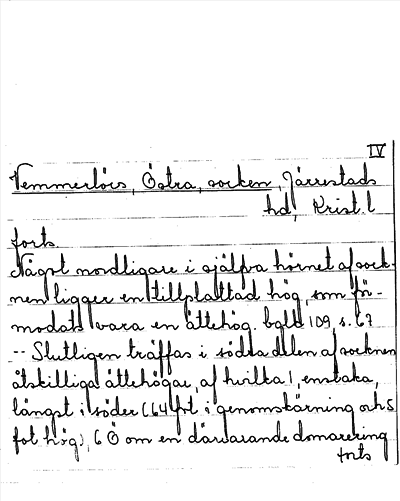 IV
Vemmerlövs, Östra, socken, Järrestads
hd, Krist. l
forts.
Något nordligare i själfva hörnet af sock-
nen ligger en tillplattad hög, som för-
modats vara en ättehög. bgld 109, s. 67
-- Slutligen träffas i södra delen af socknen
åtskilliga ättehögar, af hvilka 1, enstaka,
längst i söder (64 fot i genomskärning och 5
fot hög), 6 Ö om en därvarande domarering
forts